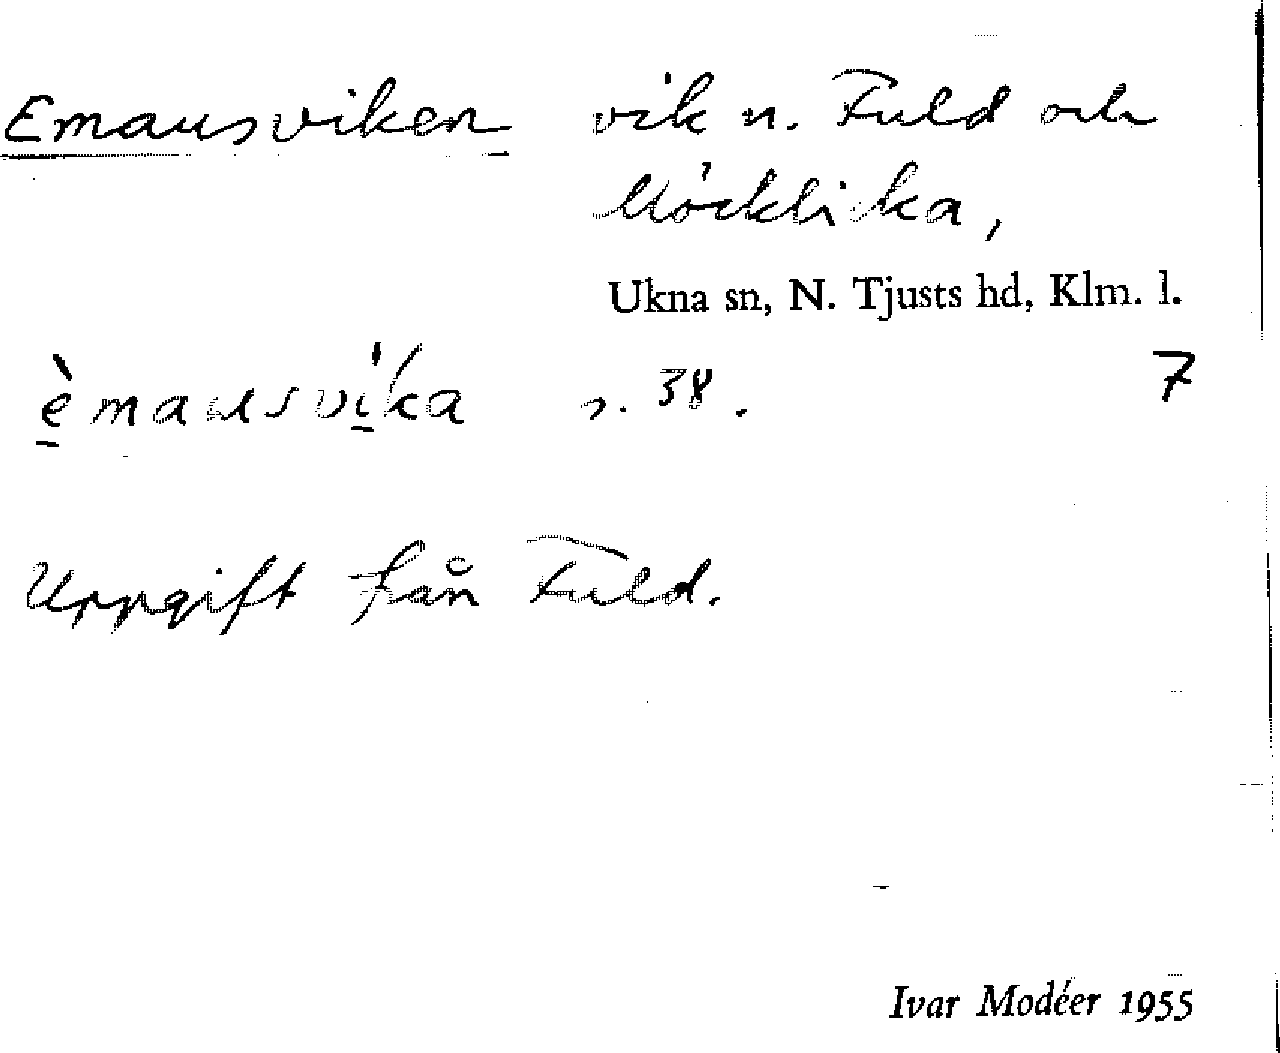 Emausviken vik n. Fuld och
Möckli ka,
Ukna sn, N. Tjusts hd, Klm. l.
èmausvi̍ka s. 38. 7
Uppgift från Fuld.
Ivar Modéer 1955